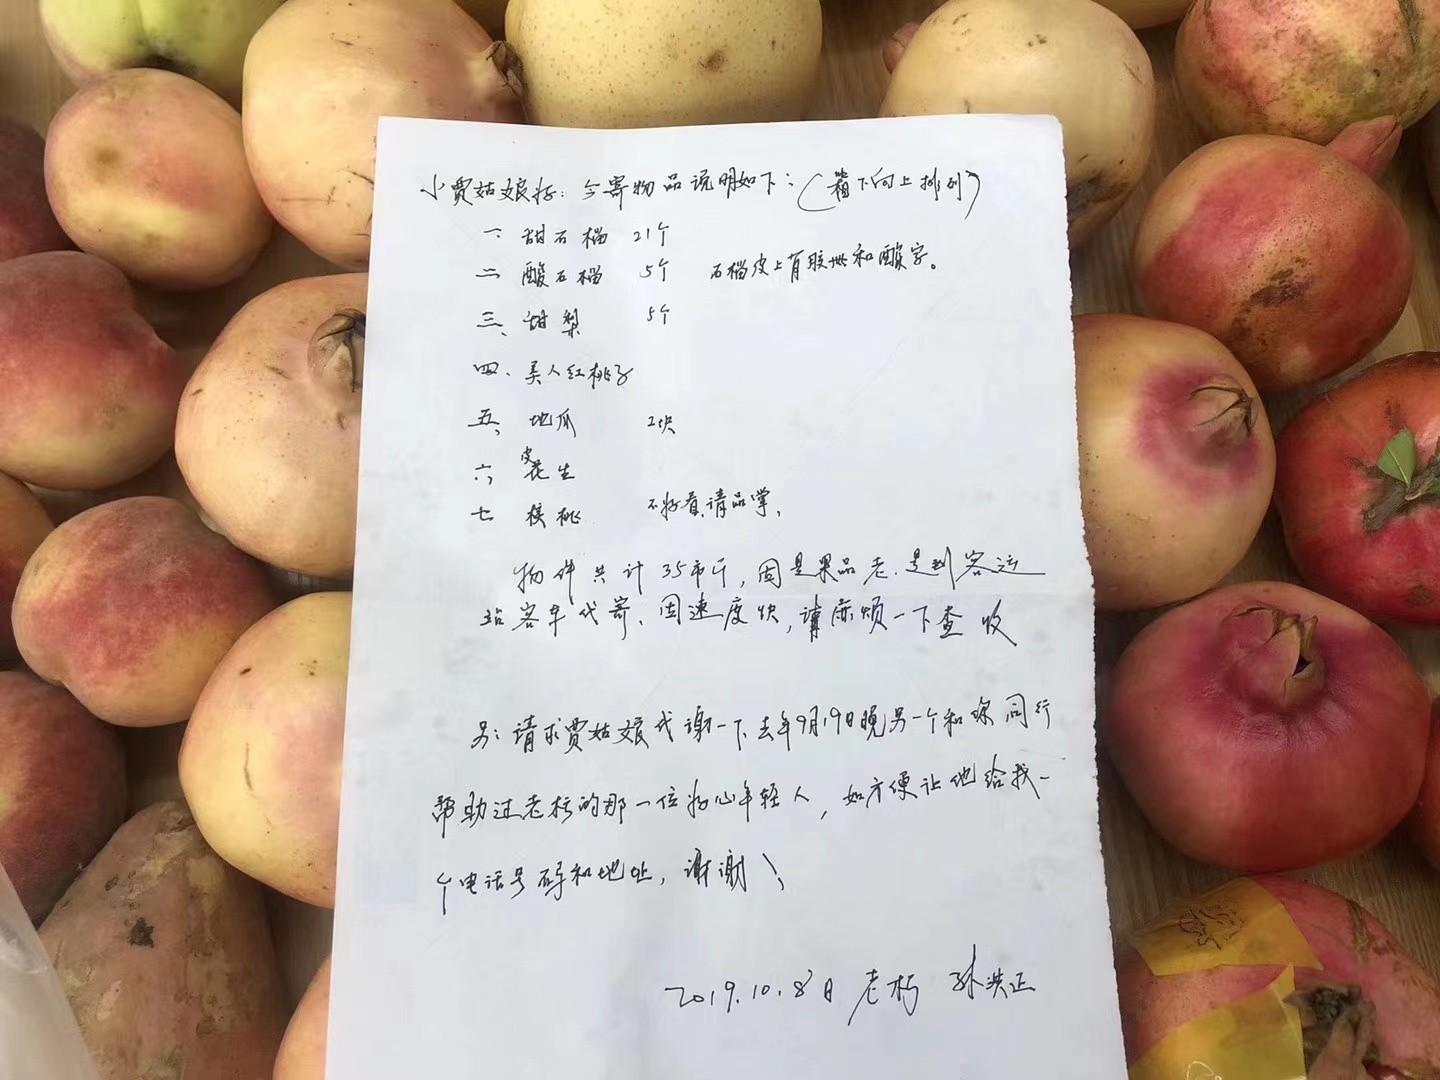 小贾姑娘好：今寄物品说明如下：（箱下向上排列）
一、甜石榴 21个
二、酸石榴 5个 石榴皮上有胶带和酸字。
三、甜梨 5个
四、美人红桃子
五、地瓜 2块
六、皮花生
七、核桃 不好看，请品掌、
物件共计35市斤，因是果品老.是到客运
站客车代寄、因速度快，请麻烦一下查收
另：请求贾姑娘代谢一下去年9月19日晚另一个和你同行
帮助过老朽的那一位好心年轻人，如方便让他给我一
个电话号码和地址，谢谢！
2019.10.8日 老朽 孙洪正